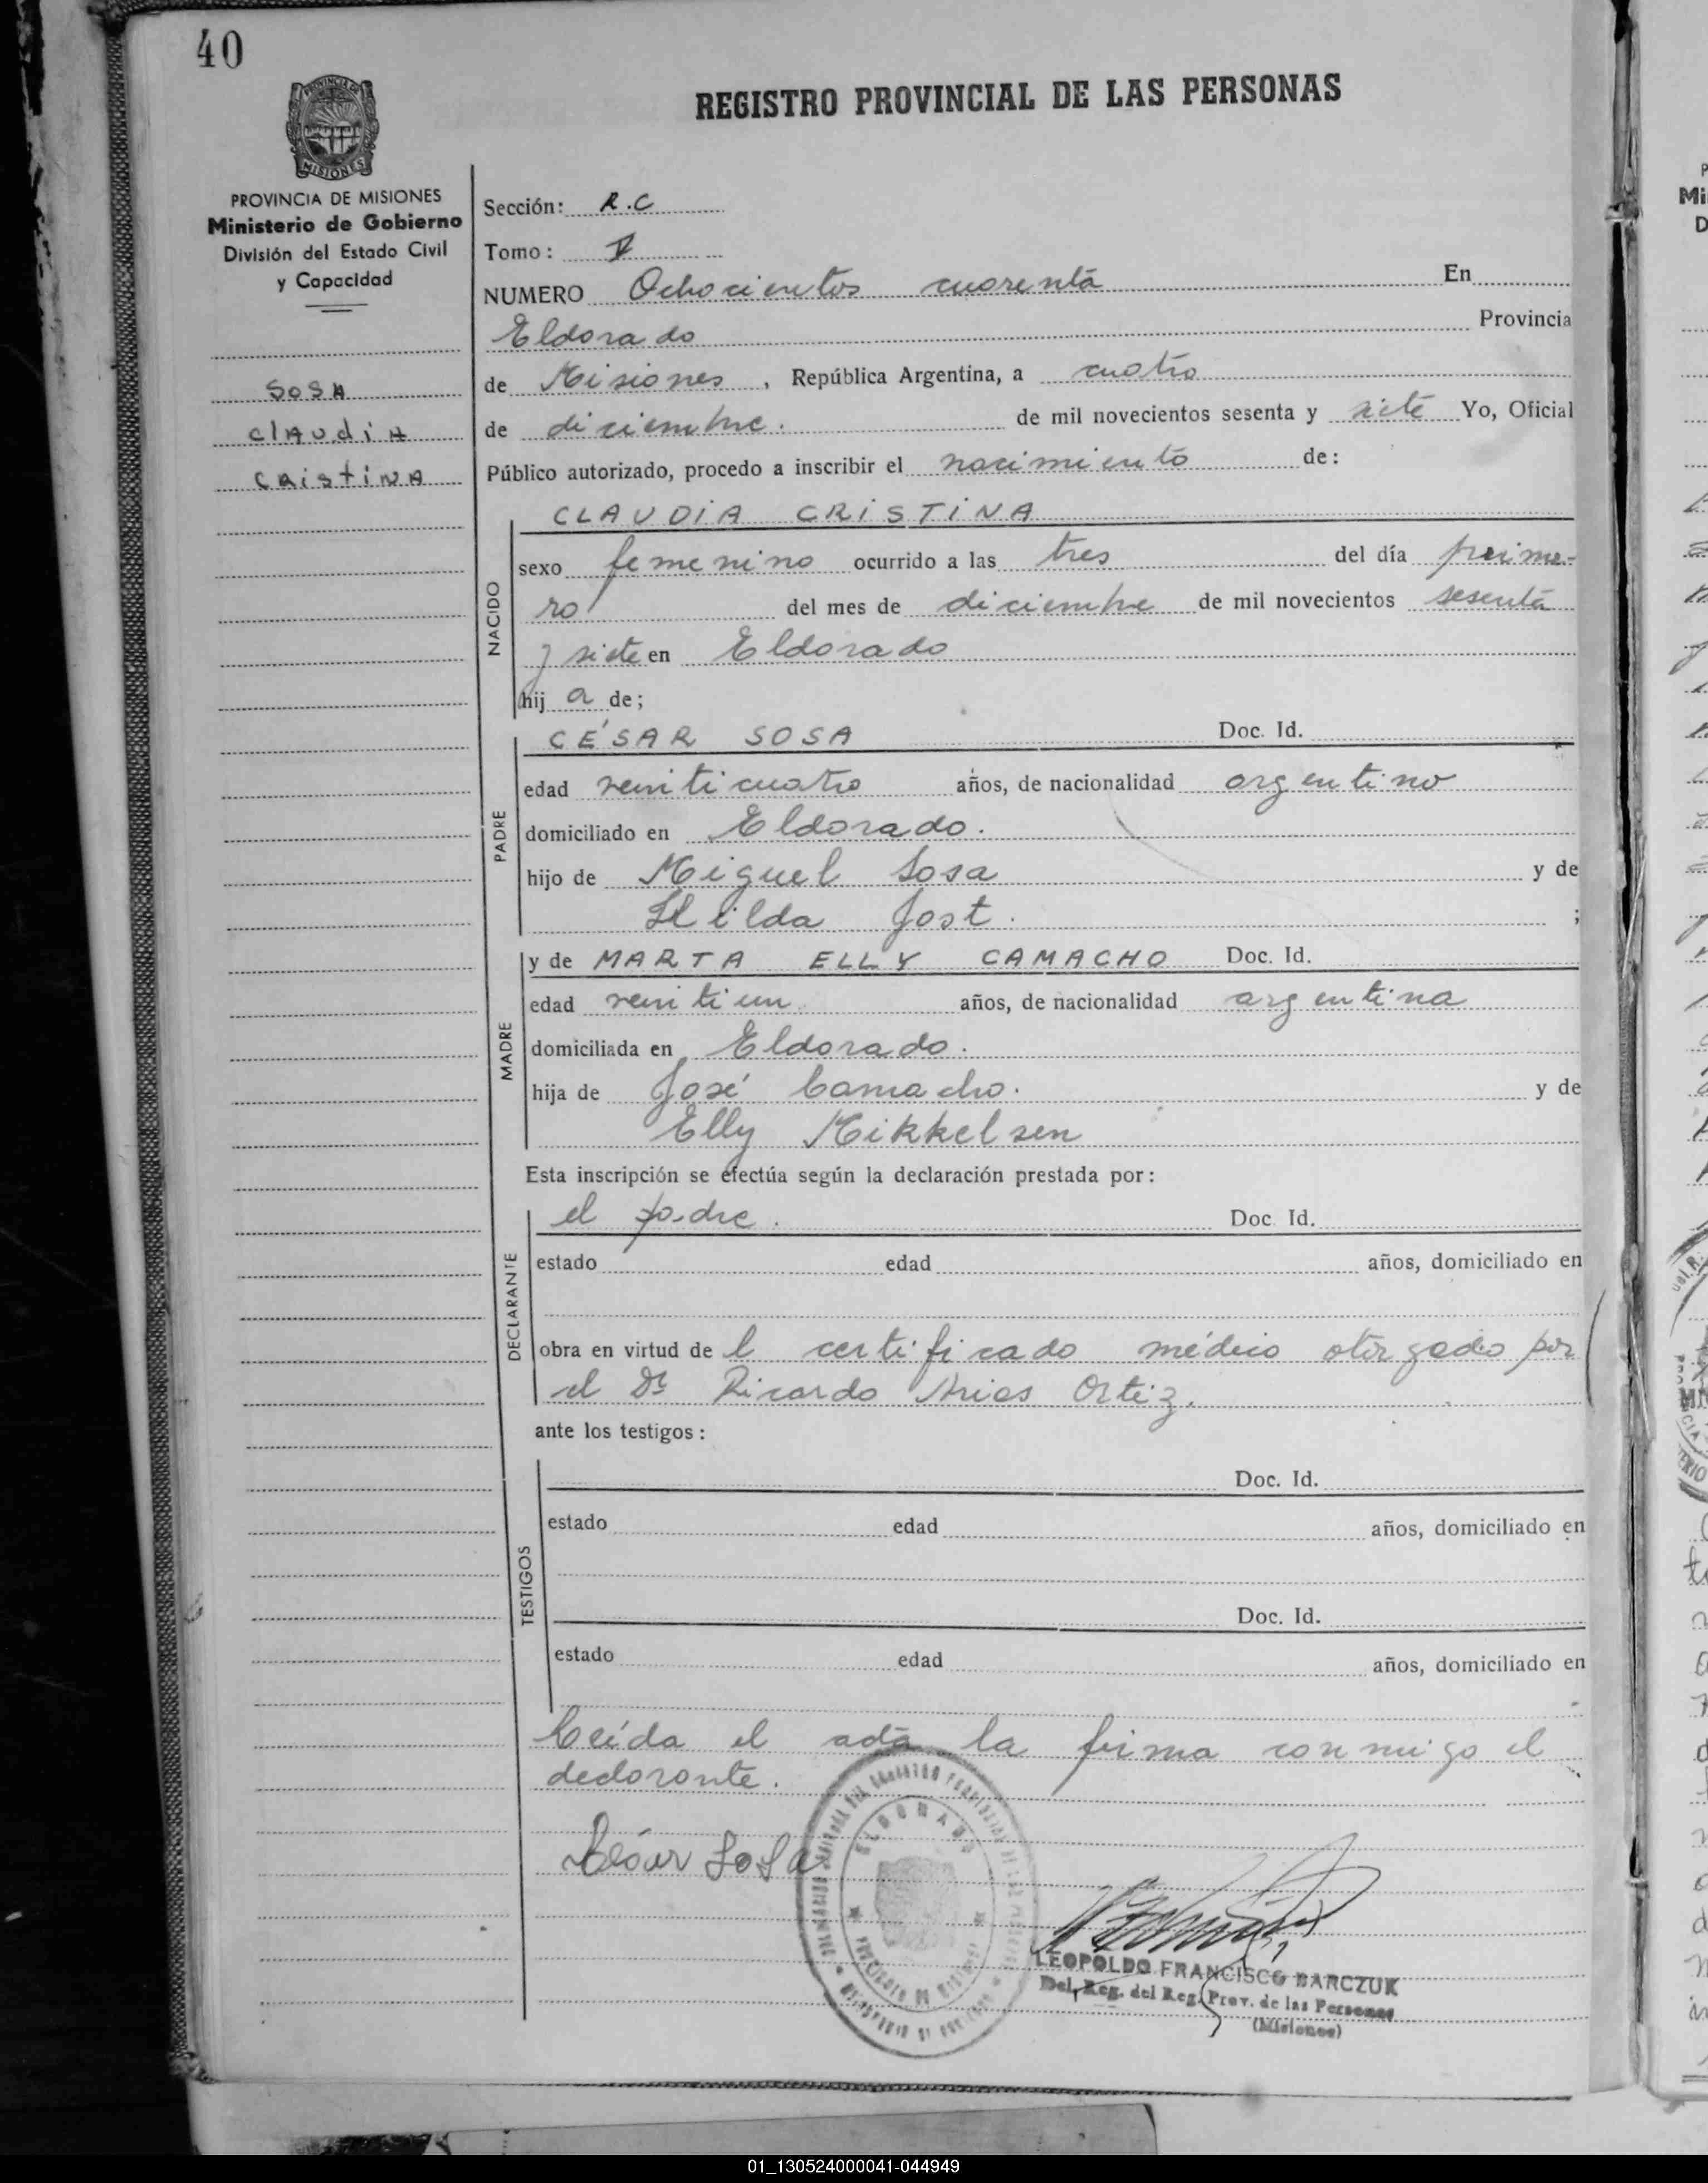 40
REGISTRO PROVINCIAL DE LAS PERSONAS
PROVINCIA DE MISIONES
MISIONES
PROVINCIA DE MISIONES
Ministerio de Gobierno
División del Estado Civil
y Capacidad
SOSA
Claudia
Cristina
Sección: R.C
Tomo: V
NUMERO Ochocientos cuarenta En
Eldorado Provincia
de Misiones, República Argentina, a cuatro
de diciembre. de mil novecientos sesenta y siete Yo, Oficial
Público autorizado, procedo a inscribir el nacimiento de:
NACIDO
CLAUDIA CRISTINA
sexo femenino ocurrido a las tres del día prime-
ro del mes de diciembre de mil novecientos sesenta
y siete en Eldorado
hij a de;
PADRE
CÉSAR SOSA Doc. Id.
edad veinticuatro años, de nacionalidad argentino
domiciliado en Eldorado.
hijo de Miguel Sosa y de
Hilda Jost. ;
MADRE
y de MARTA ELLY CAMACHO Doc. Id.
edad veintiun años, de nacionalidad argentina
domiciliada en Eldorado.
hija de José Camacho. y de
Elly Mikkelsen
Esta inscripción se efectúa según la declaración prestada por:
DECLARANTE
el padre. Doc. Id.
estado edad años, domiciliado en
obra en virtud de l certificado médico otorgado por
el Dr Ricardo Arias Ortiz.
ante los testigos:
TESTIGOS
Doc. Id.
estado edad años, domiciliado en
Doc. Id.
estado edad años, domiciliado en
Leída el acta la firma conmigo el
declarante.
César Sosa
ELDORADO
LEOPOLDO FRANCISCO BARCZUK
Del. Reg. del Reg. Prov. de las Personas
(Misiones)
01_130524000041-044949